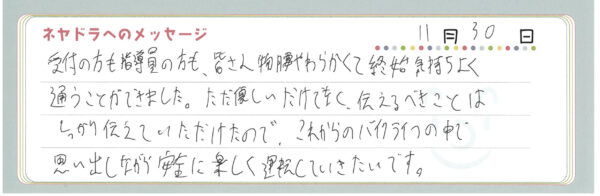 ネヤドラへのメッセージ 11月30日
受付の方も指導員の方も、皆さん物腰やわらかくて終始気持ちよく
通うことができました。ただ優しいだけでなく、伝えるべきことは
しっかり伝えていただけたので、これからのバイクライフの中で
思い出しながら安全に楽しく運転していきたいです。